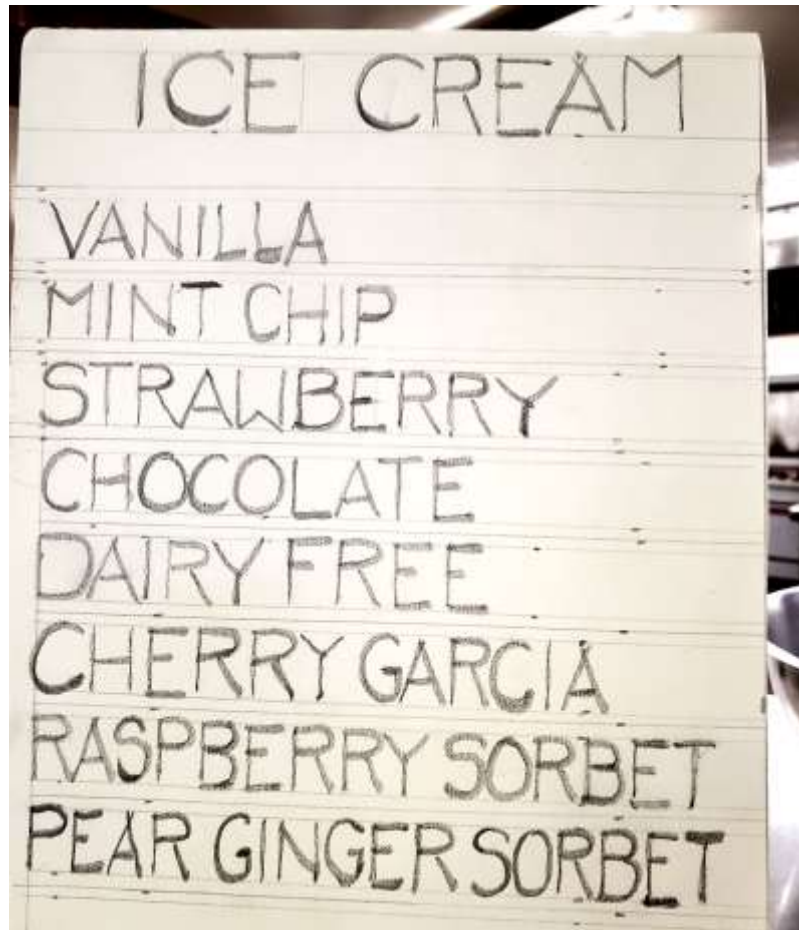 ICE CREAM
VANILLA
MINT CHIP
STRAWBERRY
CHOCOLATE
DAIRY FREE
CHERRY GARCIA
RASPBERRY SORBET
PEAR GINGER SORBET